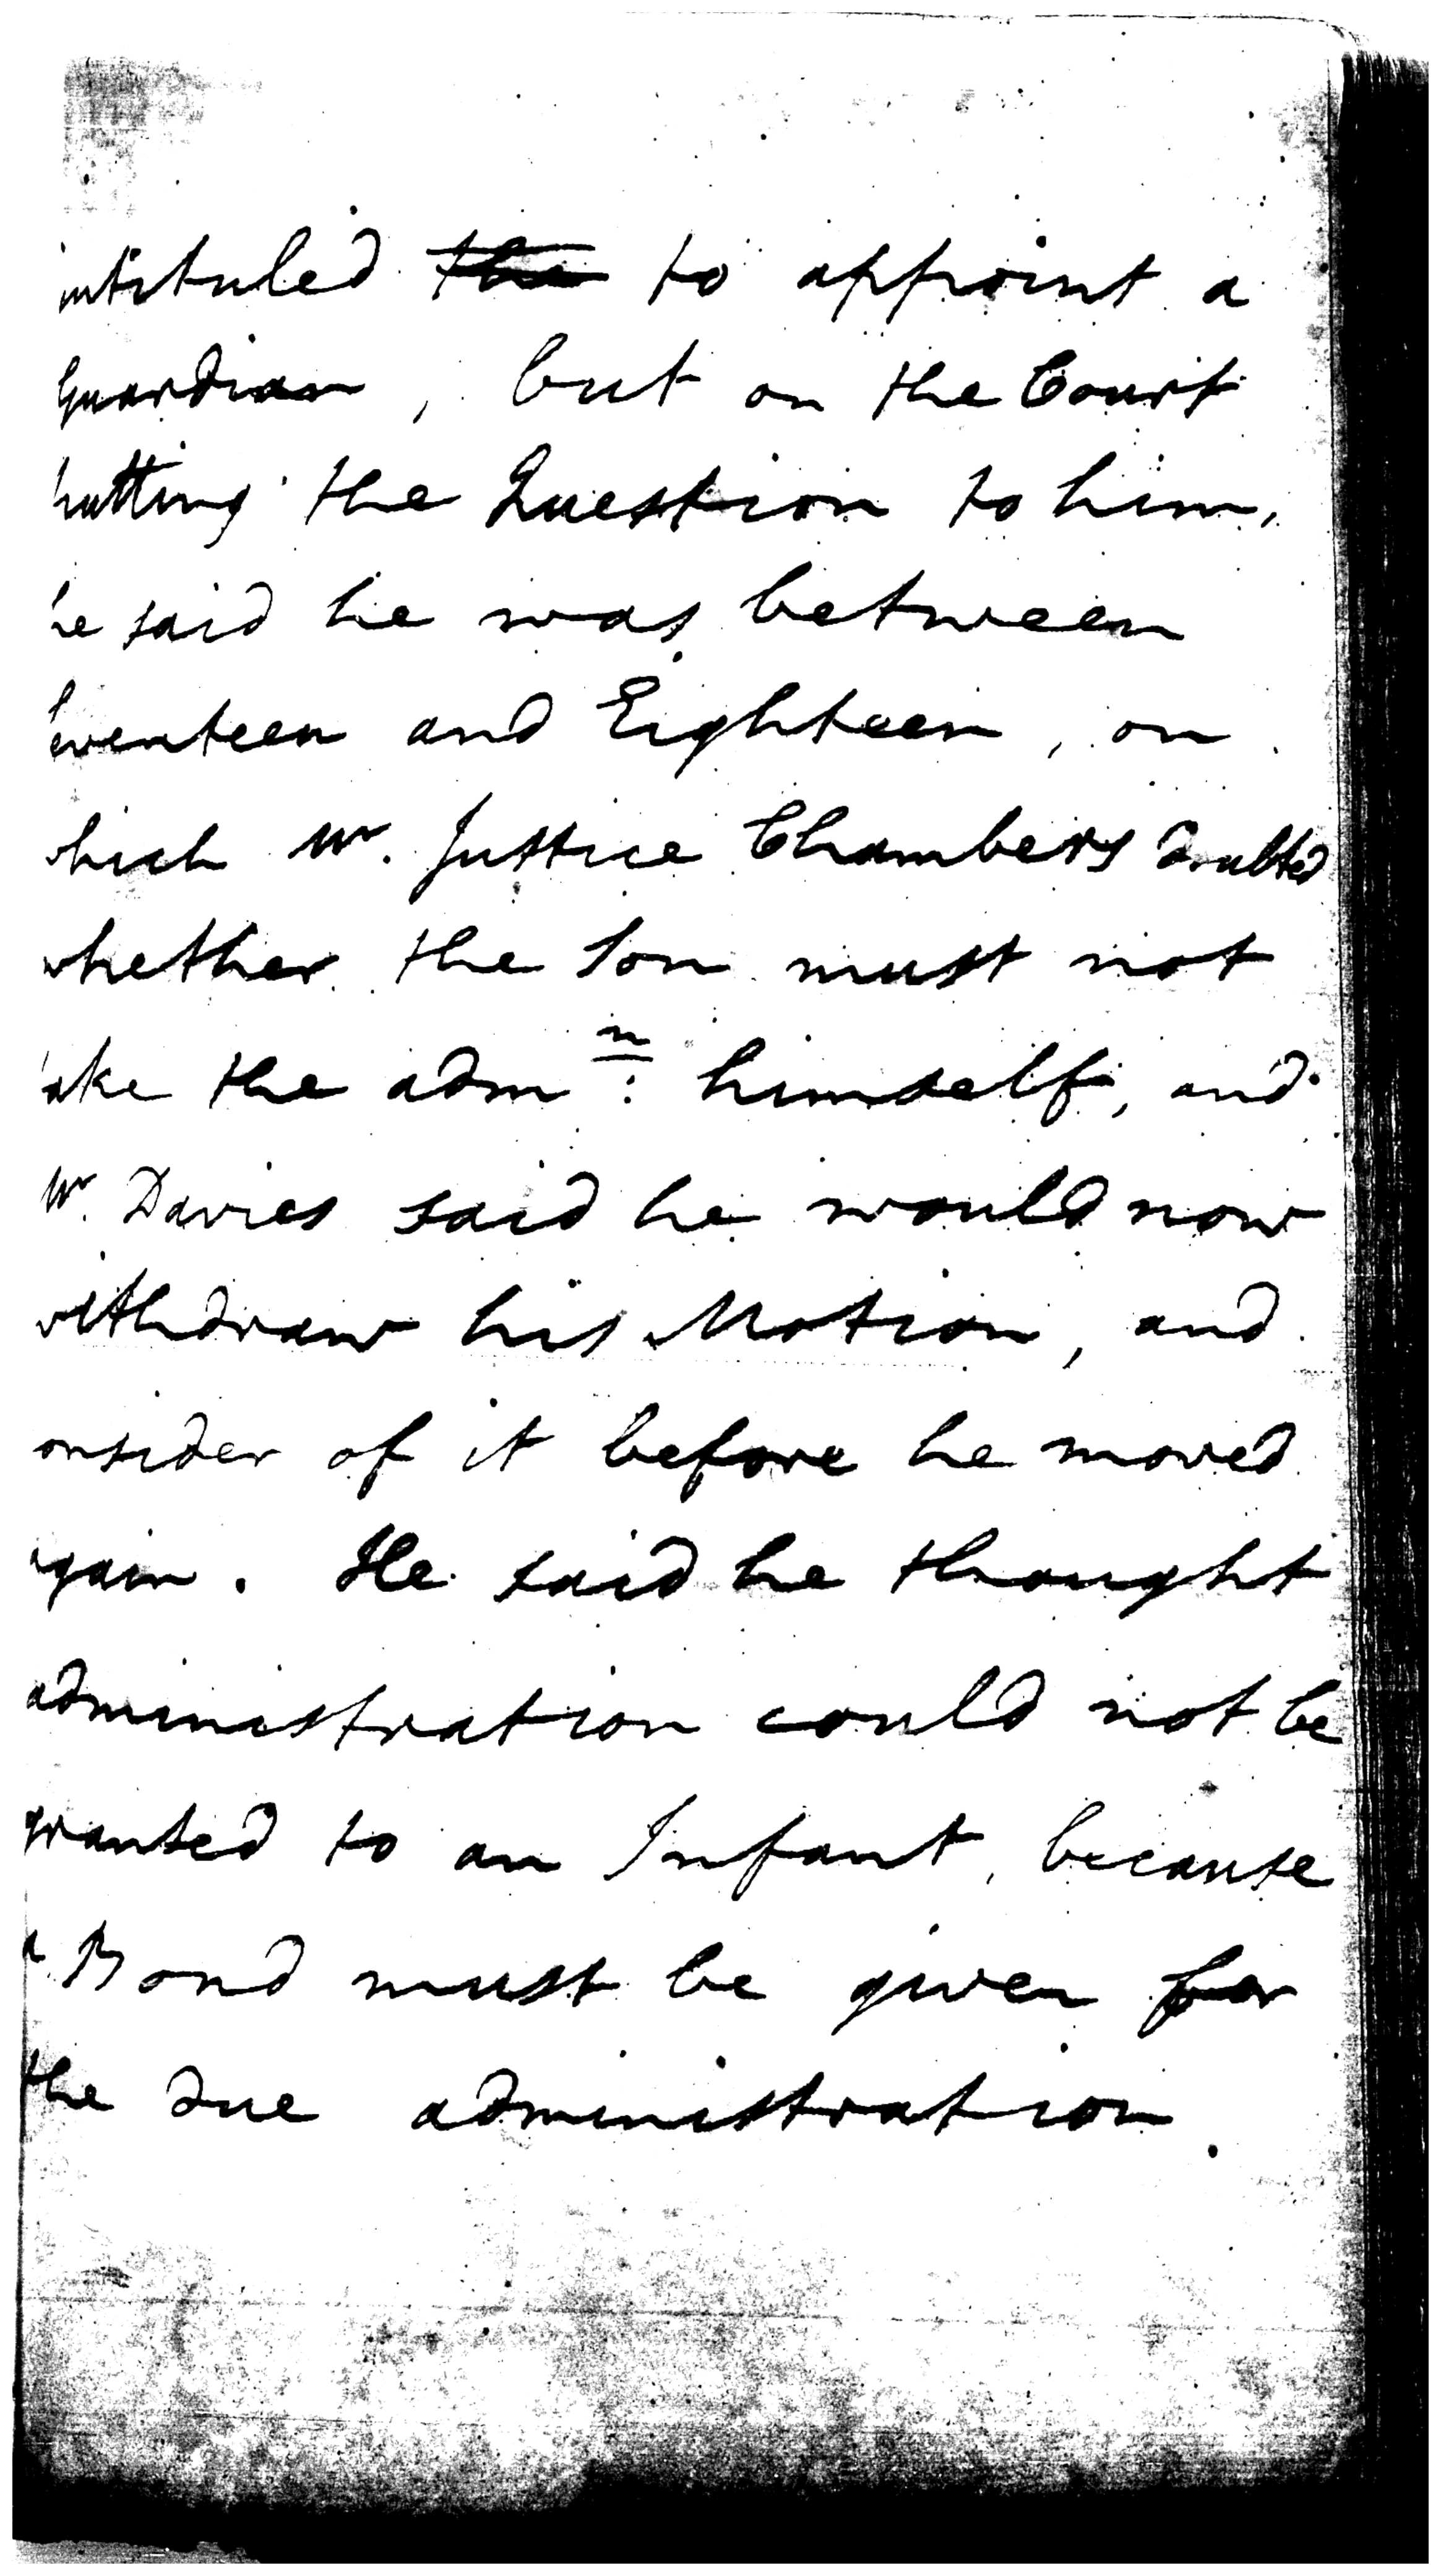 intituled the to appoint a
Guardian, but on the Court
putting the Question to him,
he said he was between
Seventeen and Eighteen, on
which Mr. Justice Chambers doubted
whether the Son must not
take the admn: himself, and
Mr. Davies said he would now
withdraw his Motion, and
consider of it before he moved
again. He said he thought
administration could not be
granted to an Infant, because
a Bond must be given for
the due administration.